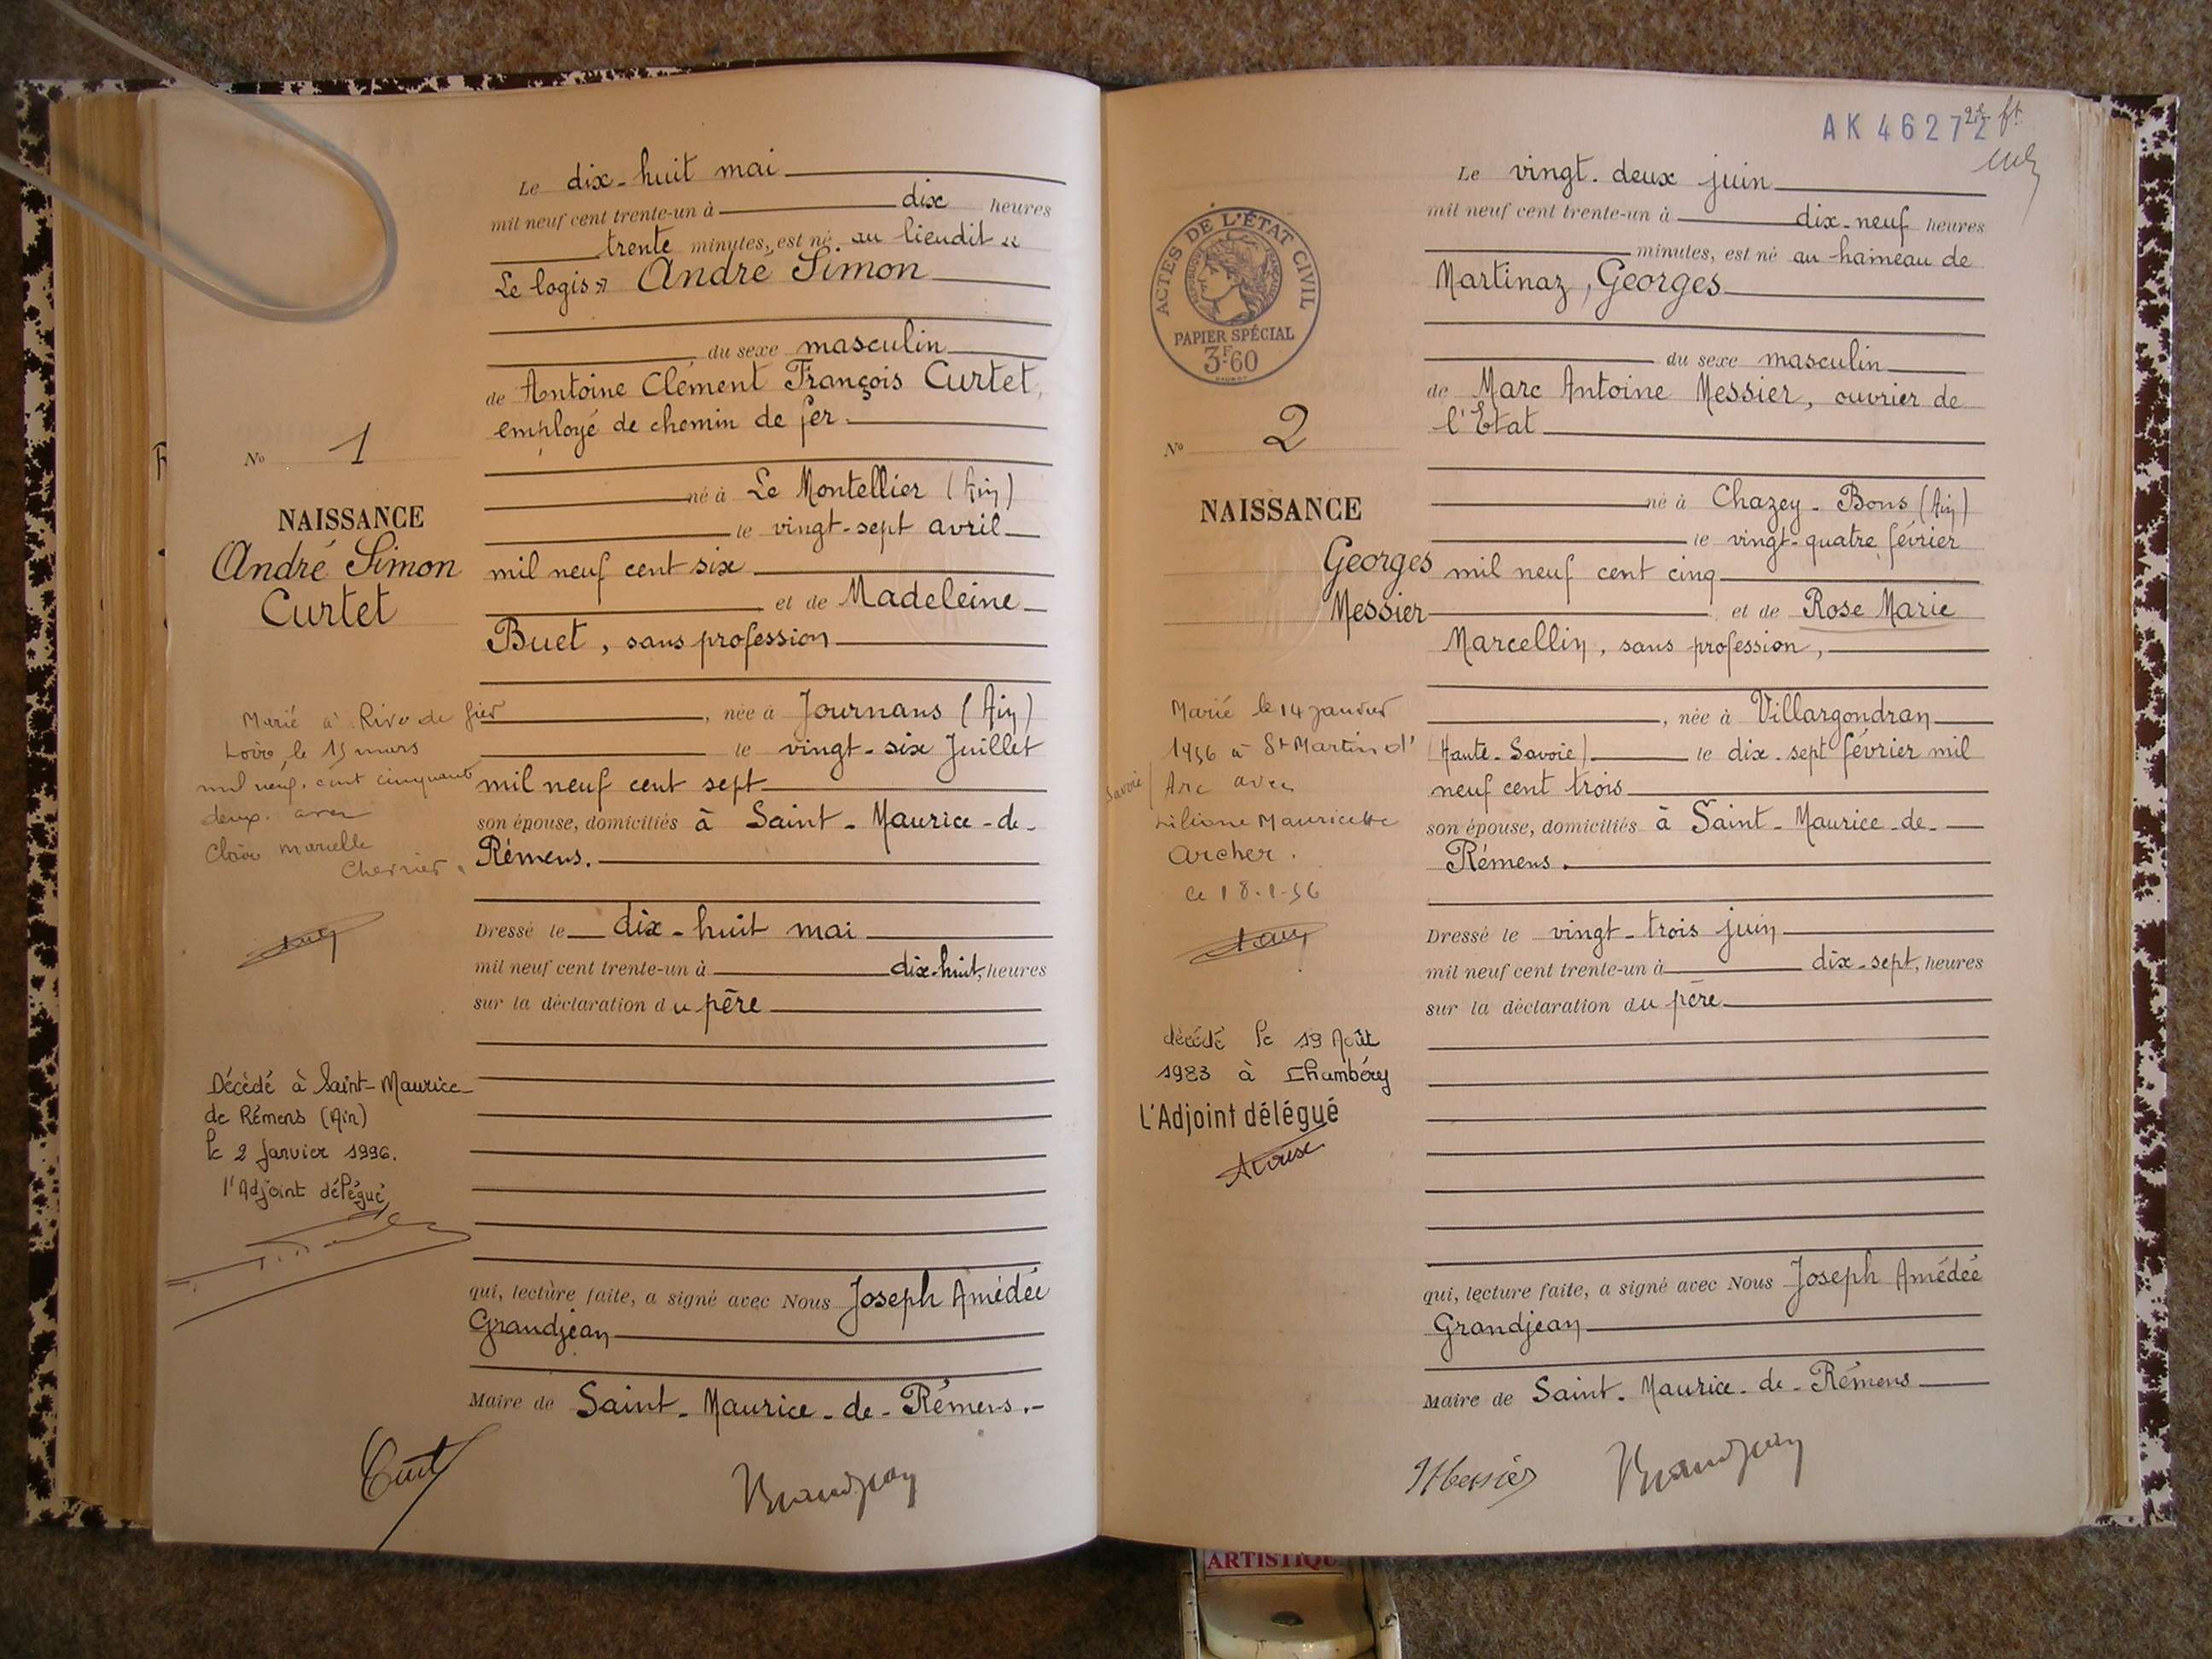 Le dix-huit mai
mil neuf cent trente-un à dix heures
trente minutes, est né au lieudit «
Le logis» André Simon
du sexe masculin
de Antoine Clément François Curtet,
employé de chemin de fer
né à Le Montellier (Ain)
le vingt-sept avril
mil neuf cent six
et de Madeleine
Buet, sans profession
, née à Journans (Ain)
le vingt-six Juillet
mil neuf cent sept
son épouse, domiciliés à Saint-Maurice-de-
Rémens.
Dressé le dix-huit mai
mil neuf cent trente-un à dix-huit, heures
sur la déclaration du père
qui, lecture faite, a signé avec Nous Joseph Amédée
Grandjean
Maire de Saint-Maurice-de-Rémens.-
No 1
NAISSANCE
André Simon
Curtet
Marié à Rive de Gier
Loire, le 15 mars
mil neuf cent cinquante
deux avec
Claire Marielle
Décédé à Saint-Maurice-
de Rémens (Ain)
le 2 Janvier 1996.
l'Adjoint délégué
AK 46272
2e ft
Le vingt-deux juin
mil neuf cent trente-un à dix-neuf heures
minutes, est né au hameau de
Martinaz, Georges
du sexe masculin
de Marc Antoine Messier, ouvrier de
l'Etat
né à Chazey-Bons (Ain)
le vingt-quatre février
mil neuf cent cinq
et de Rose Marie
Marcellin, sans profession,
, née à Villargondran
(Haute-Savoie) le dix-sept février mil
neuf cent trois
son épouse, domiciliés à Saint-Maurice-de-
Rémens.
Dressé le vingt-trois juin
mil neuf cent trente-un à dix-sept, heures
sur la déclaration du père
qui, lecture faite, a signé avec Nous Joseph Amédée
Grandjean
Maire de Saint-Maurice-de-Rémens
Messier
ACTES DE L'ÉTAT CIVIL
RÉPUBLIQUE FRANÇAISE
PAPIER SPÉCIAL
3F60
No 2
NAISSANCE
Georges
Messier
Marié le 14 janvier
1956 à St Martin d'
Arc avec
Savoie
Liliane Mauricette
Archer.
le 18-1-56
décédé le 19 Août
1983 à Chambéry
L'Adjoint délégué
ARTISTIQU